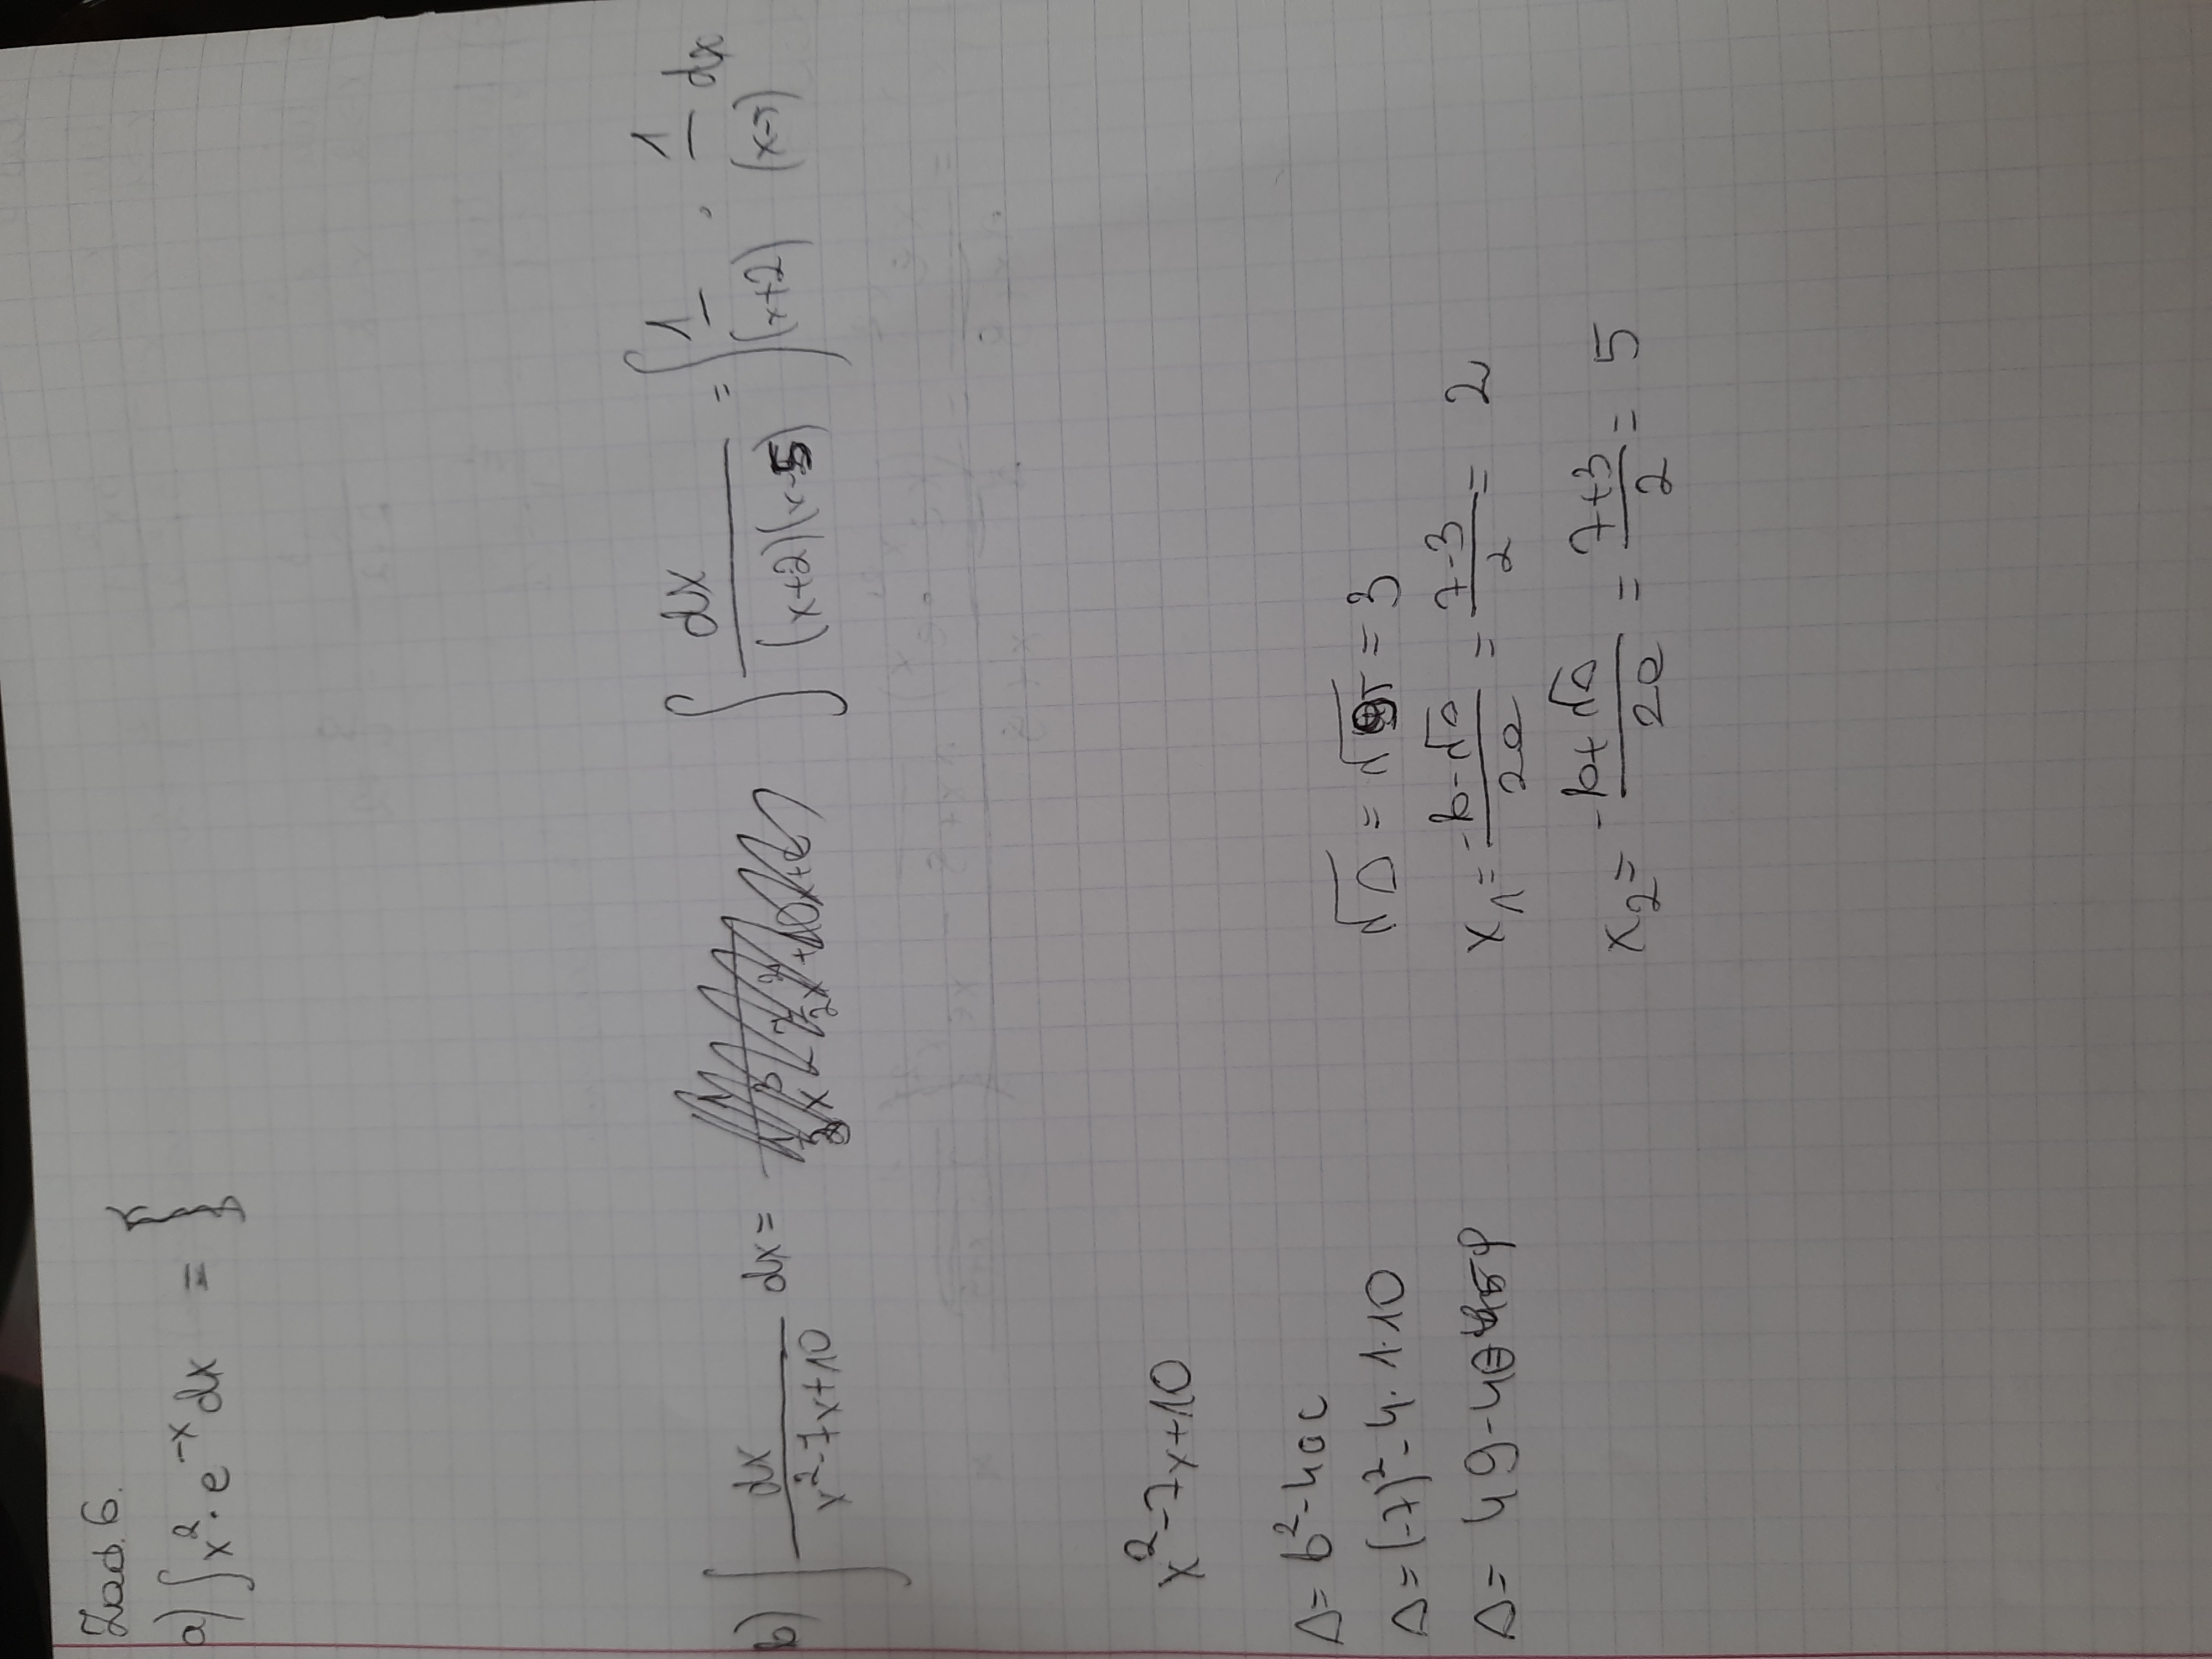 Zad. 6.
a) ∫ x² · e^{-x} dx = {
b) ∫ dx / (x² - 7x + 10) dx = ∫ dx / ((x+2)(x-5)) = ∫ 1/(x+2) · 1/(x-5) dx
x² - 7x + 10
Δ = b² - 4ac
Δ = (-7)² - 4 · 1 · 10
√Δ = √9 = 3
Δ = 49 - 40 = 9
x₁ = (-b - √Δ) / 2a = (7 - 3) / 2 = 2
x₂ = (-b + √Δ) / 2a = (7 + 3) / 2 = 5